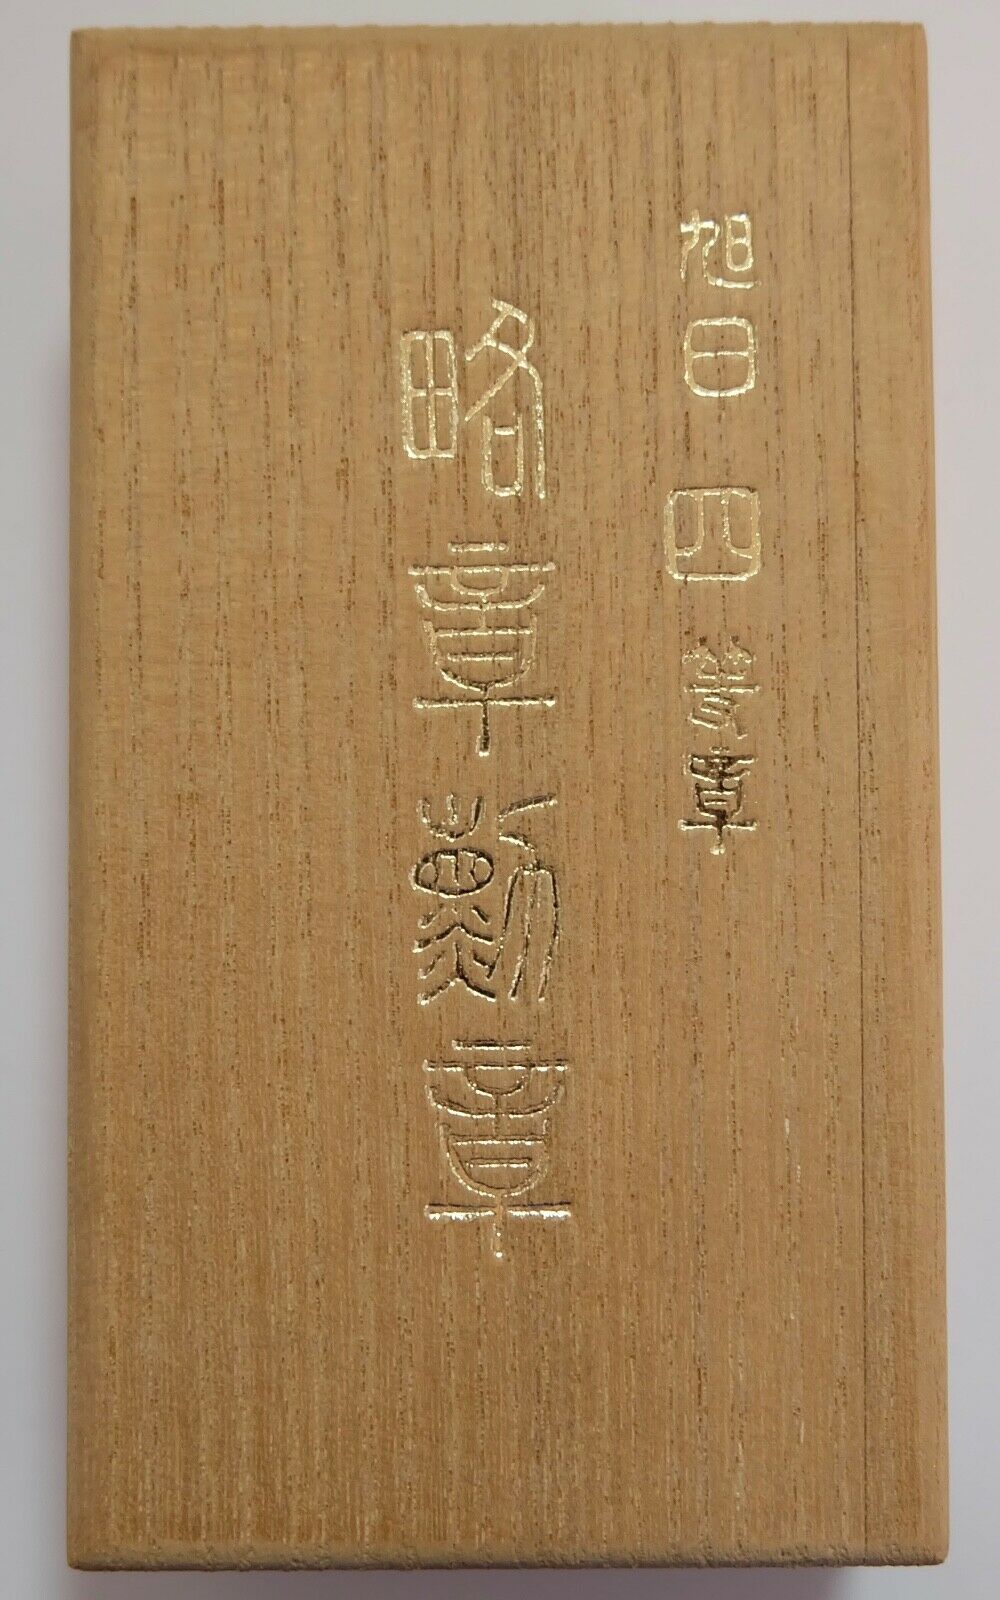 旭日四等章
略章勳章